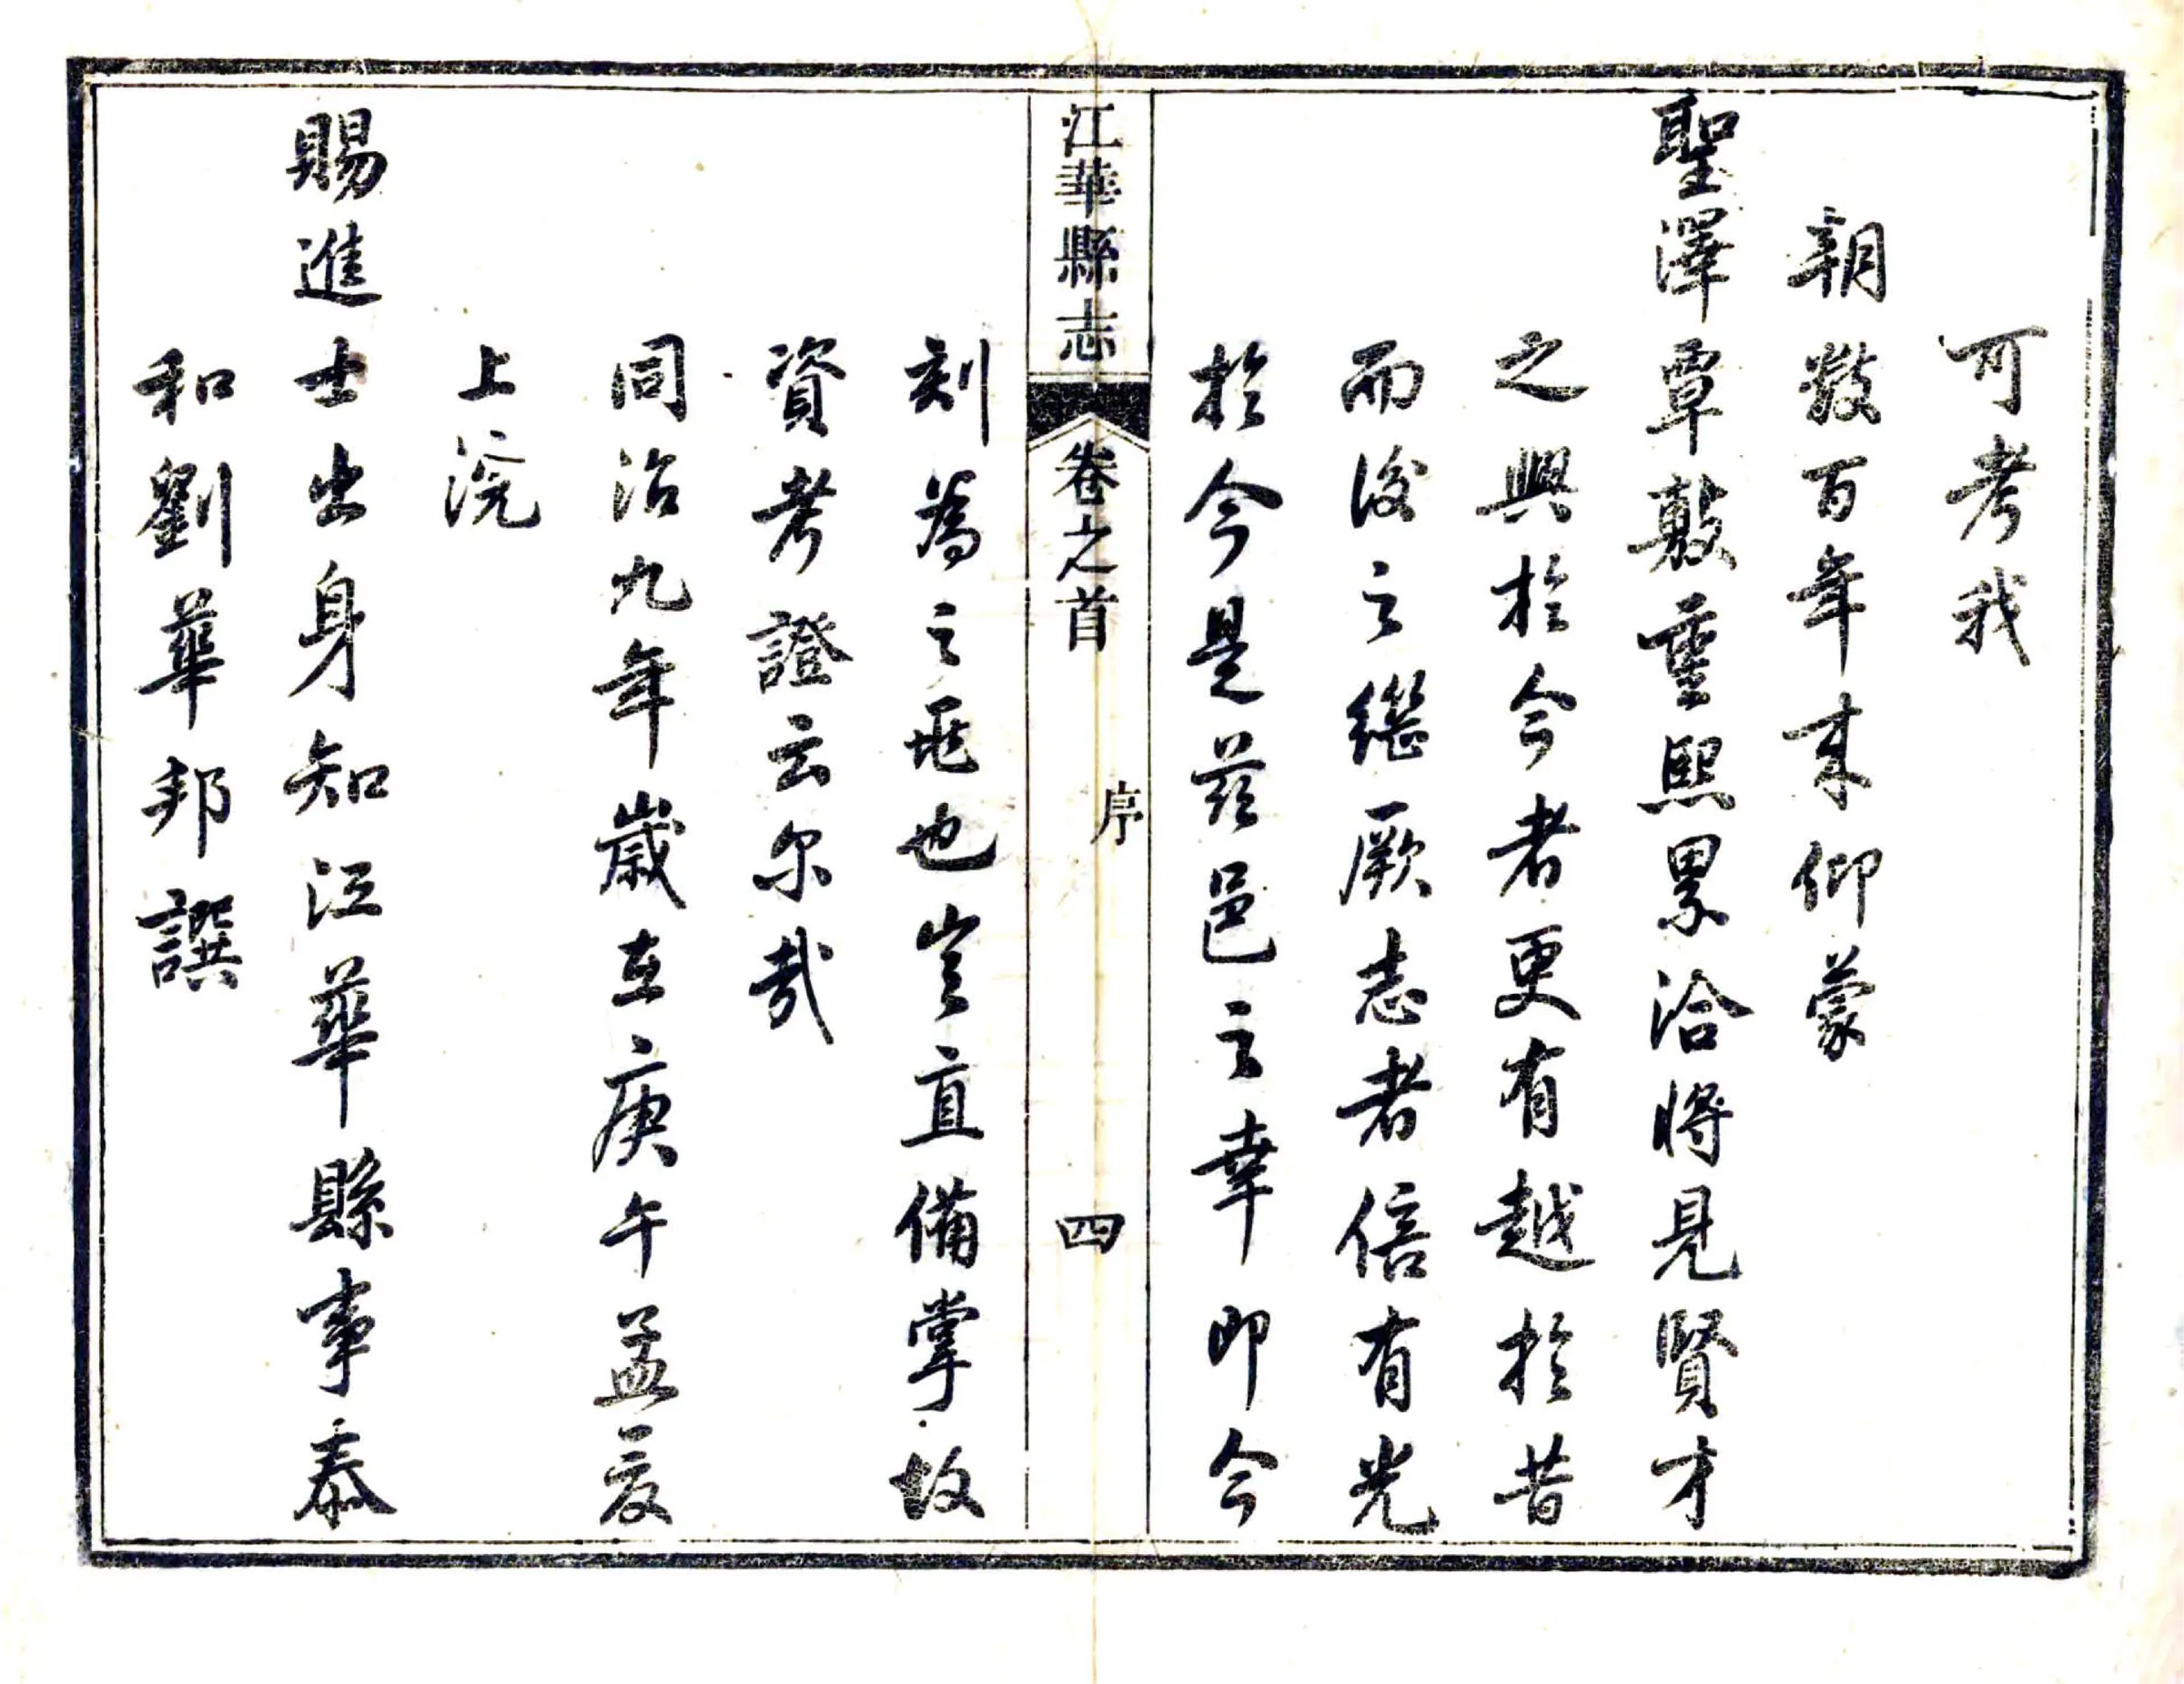 可考我
朝数百年来仰蒙
聖澤覃敷重熙累洽將見賢才
之興於今者更有越於昔
而後之繼厥志者倍有光
於今是茲邑之幸即今
江華縣志
卷之首
序
四
刻為之死也豈直備掌故
資考證云尔哉
同治九年歲在庚午孟夏
上浣
賜進士出身知江華縣事泰
和劉華邦譔